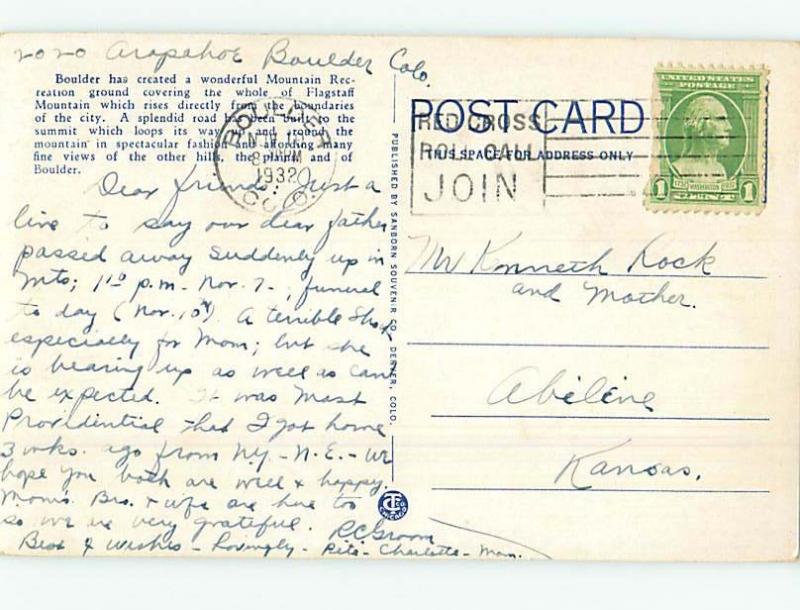 2020 Arapahoe Boulder Colo.
Boulder has created a wonderful Mountain Rec-
reation ground covering the whole of Flagstaff
Mountain which rises directly from the boundaries
of the city. A splendid road has been built to the
summit which loops its way and around the
mountain in spectacular fashion and affording many
fine views of the other hills, the plains and of
Boulder.
BOULDER
1932
COLO.
Dear friends: Just a
line to say our dear father
passed away suddenly up in
Mts; 1 10 p.m. Nov. 7.; funeral
to day (Nov. 10th). A terrible shock
especially for Mom; but she
is bearing up as well as can
be expected. It was most
Providential that I got home
3 wks. ago from N.Y. - N.E. - We
hope you both are well & happy.
Mom's Bro. & wife are here too
so we are very grateful. RCGroom
Best of wishes - Lovingly - Rita - Charlotte - Mom.
PUBLISHED BY SANBORN SOUVENIR CO. DENVER, COLO.
CT CO
CHICAGO
POST CARD
THIS SPACE FOR ADDRESS ONLY
RED CROSS
ROLL CALL
JOIN
UNITED STATES
POSTAGE
1 1732 WASHINGTON 1932 1
CENT
Mr Kenneth Rock
and Mother.
Abilene
Kansas.